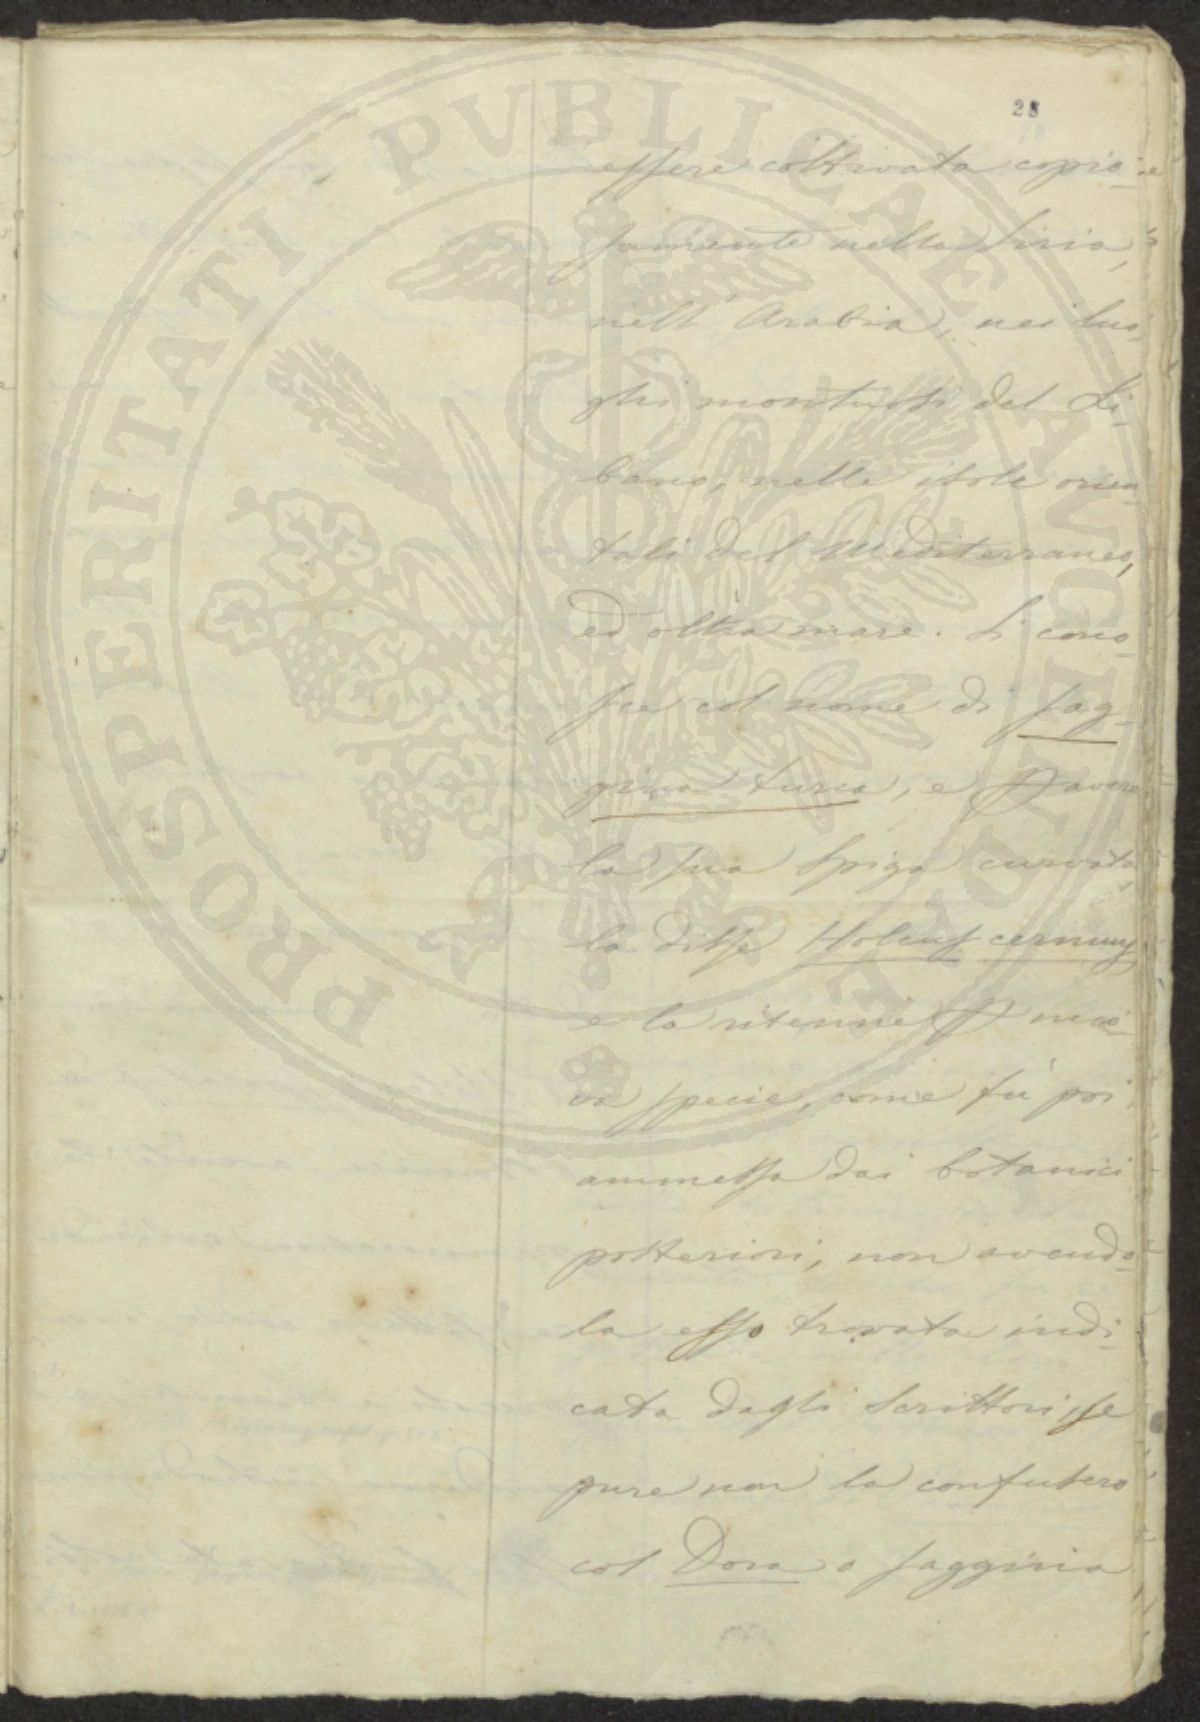 28
essere coltivata copio-
samente nella Siria,
nell' Arabia, nei luo-
ghi montuosi del Li-
bano, nelle isole orien
tali del Mediterraneo,
ed oltra mare. Si cono-
sce col nome di sag-
gina turca, e p avere
la sua spiga curvata,
la disse Holcus cernuus
e la ritenne p nuo-
va specie, come fù poi
ammessa dai botanici
posteriori, non avendo-
la esso trovata indi-
cata dagli Scrittori, se
pure non la confusero
col Dora o saggina
PROSPERITATI PVBLICAE AVGENDAE